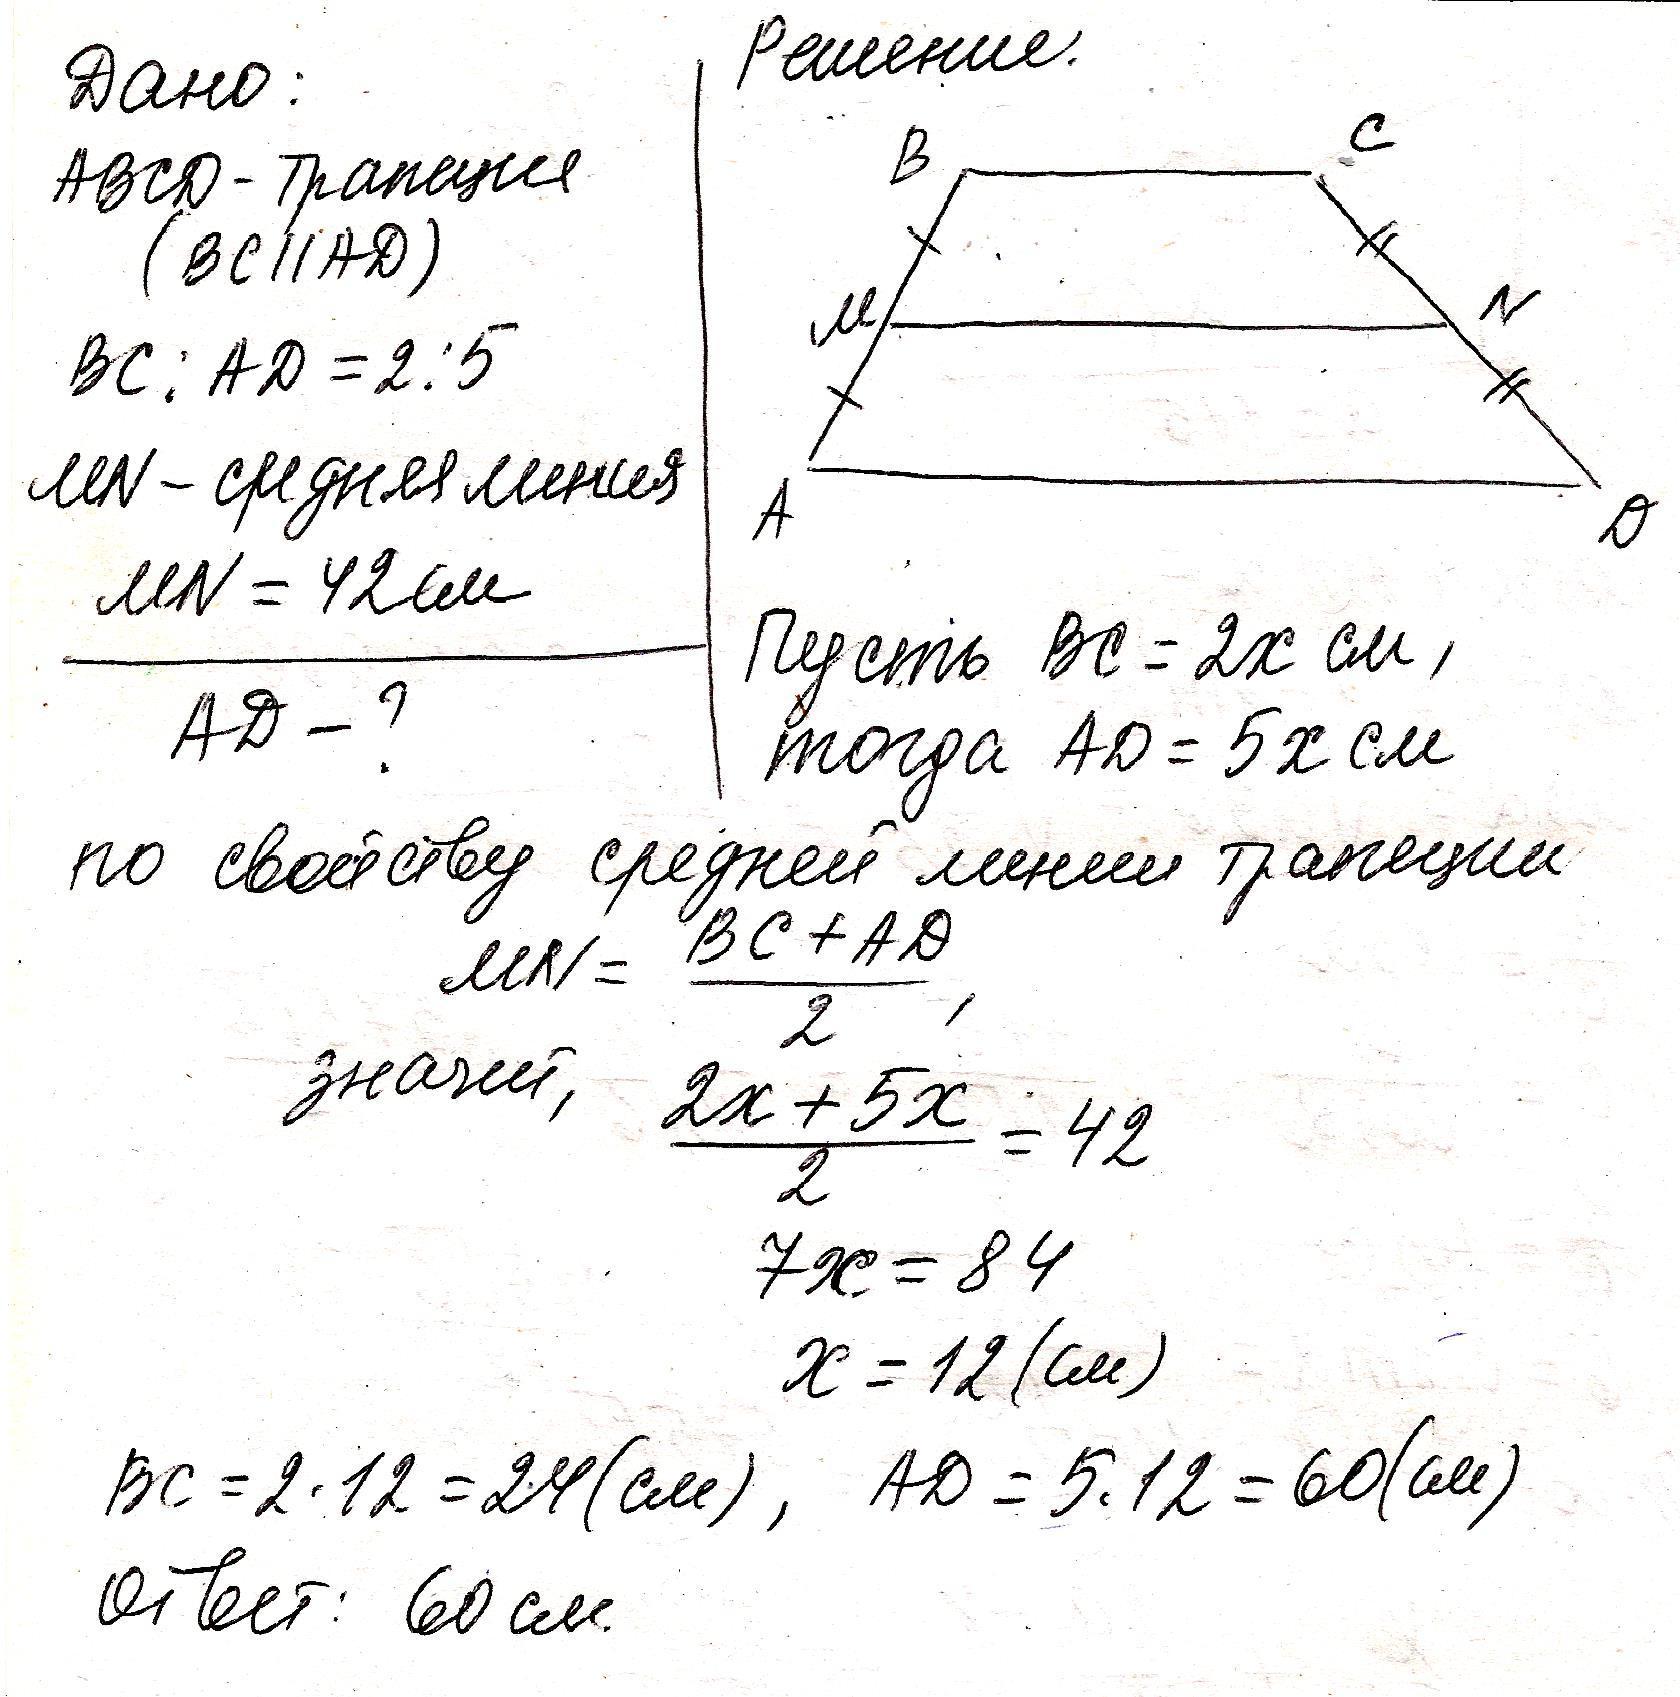 Дано:
ABCD - трапеция
(BC || AD)
BC : AD = 2:5
MN - средняя линия
MN = 42 см
AD - ?
Решение.
B
C
M
N
A
D
Пусть BC = 2x см,
тогда AD = 5x см
по свойству средней линии трапеции
MN = (BC + AD)/2,
значит, (2x + 5x)/2 = 42
7x = 84
x = 12 (см)
BC = 2·12 = 24 (см), AD = 5·12 = 60 (см)
Ответ: 60 см.